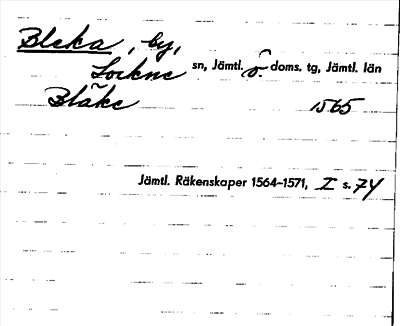 Bleka, by,
Lockne sn, Jämtl. ö. doms. tg, Jämtl. län
Bläke 1565
Jämtl. Räkenskaper 1564-1571, I s. 74